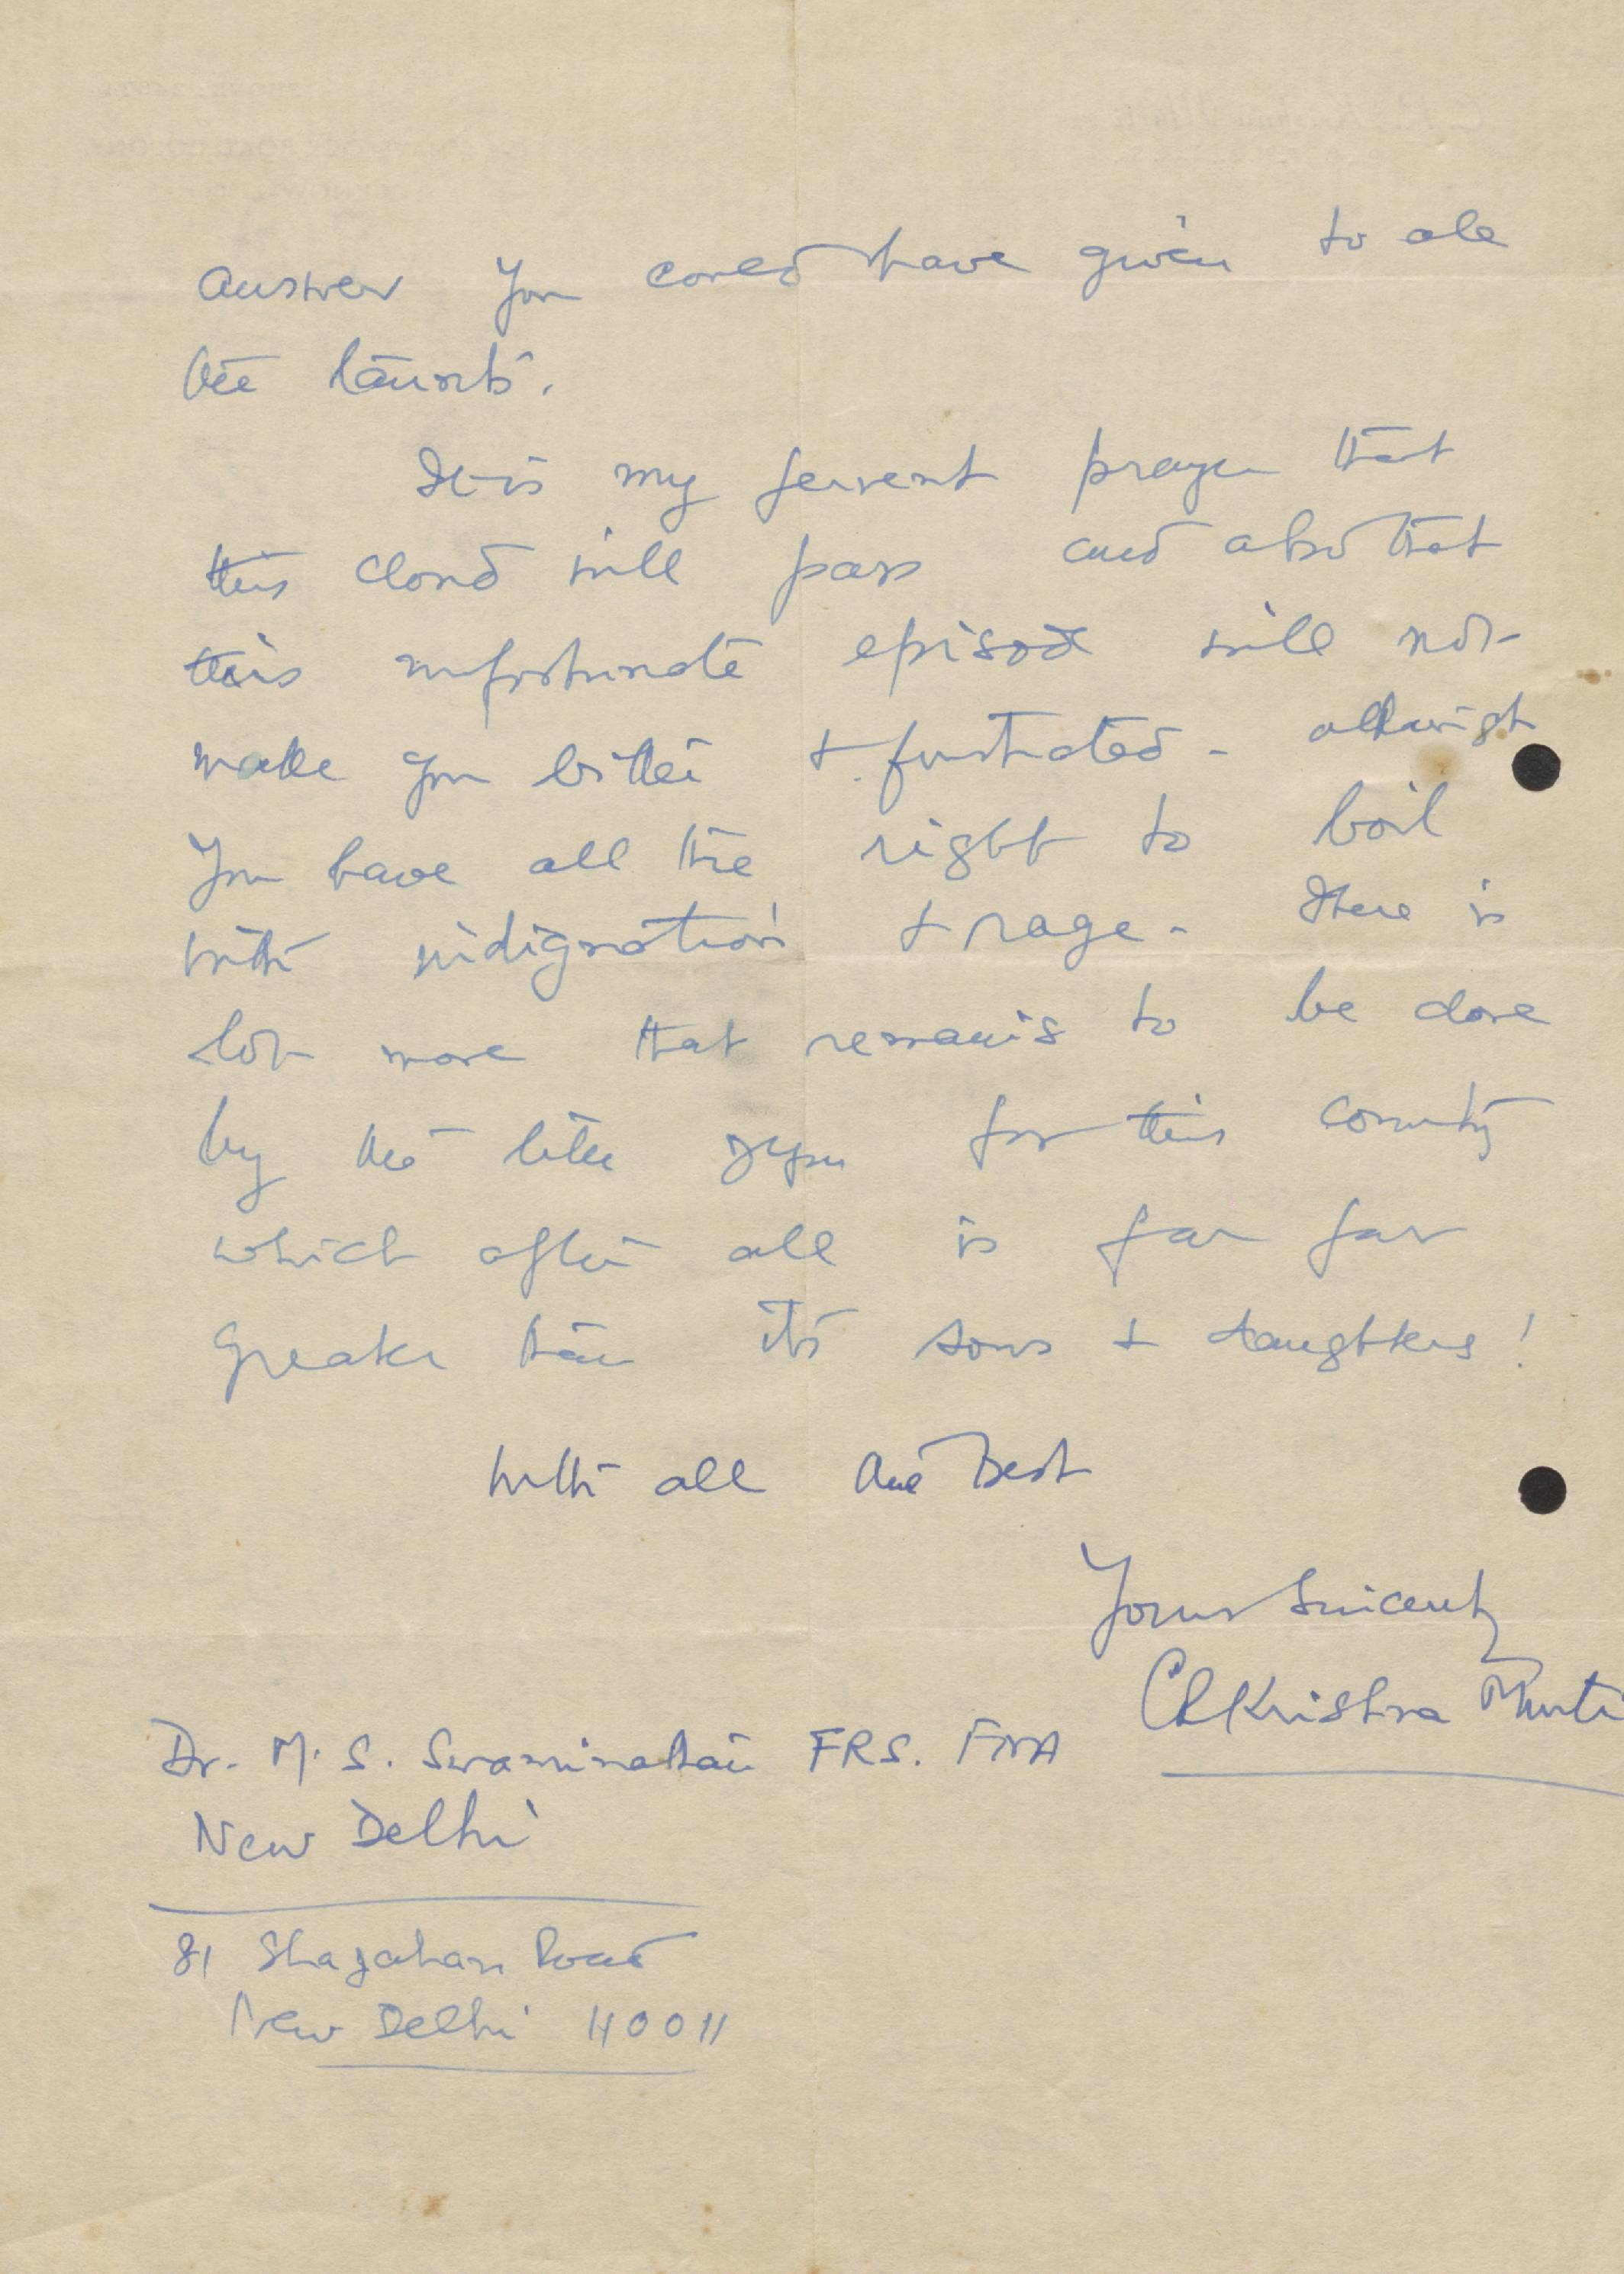 answer you could have given to all
the taunts.
It is my fervent prayer that
this cloud will pass and also that
this unfortunate episode will not
make you bitter & frustrated - although
you have all the right to boil
with indignation & rage - There is
lot more that remains to be done
by the like of you for this country
which after all is far far
greater than its sons & daughters!
With all the Best
Yours Sincerely
Krishna Murti
Dr. M. S. Swaminathan FRS. FNA
New Delhi
81 Shajahan Road
New Delhi 110011